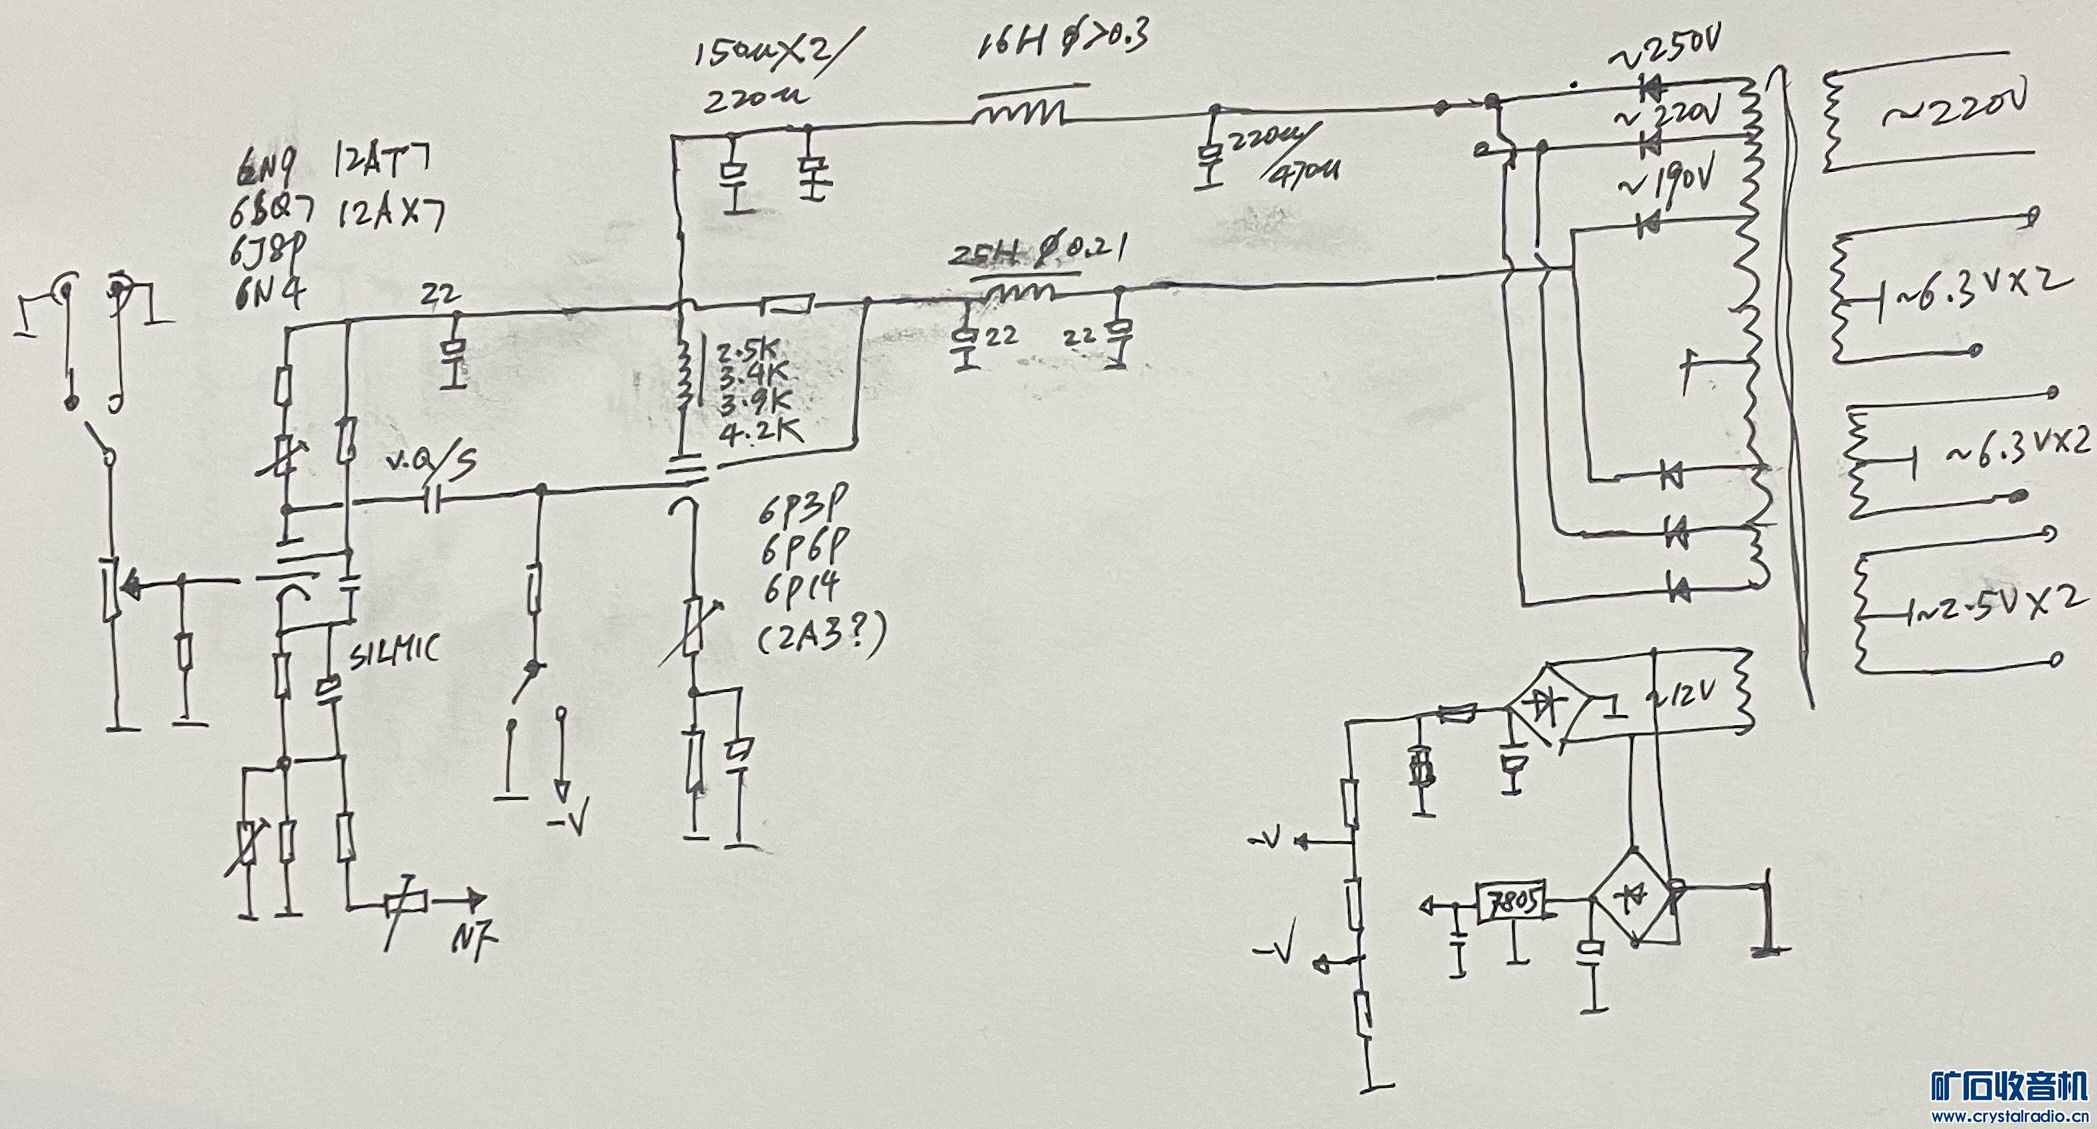 150u×2/
220u
16H ϕ>0.3
~250V
~220V
~190V
220u/
470u
~220V
6N9 12AT7
6SQ7 12AX7
6J8P
6N4
22
25H ϕ0.21
22
22
~6.3V×2
2.5K
3.4K
3.9K
4.2K
V.Q/S
~6.3V×2
6P3P
6P6P
6P14
(2A3?)
~2.5V×2
SILMIC
~12V
-V
-V
7805
NF
-V
矿石收音机
www.crystalradio.cn